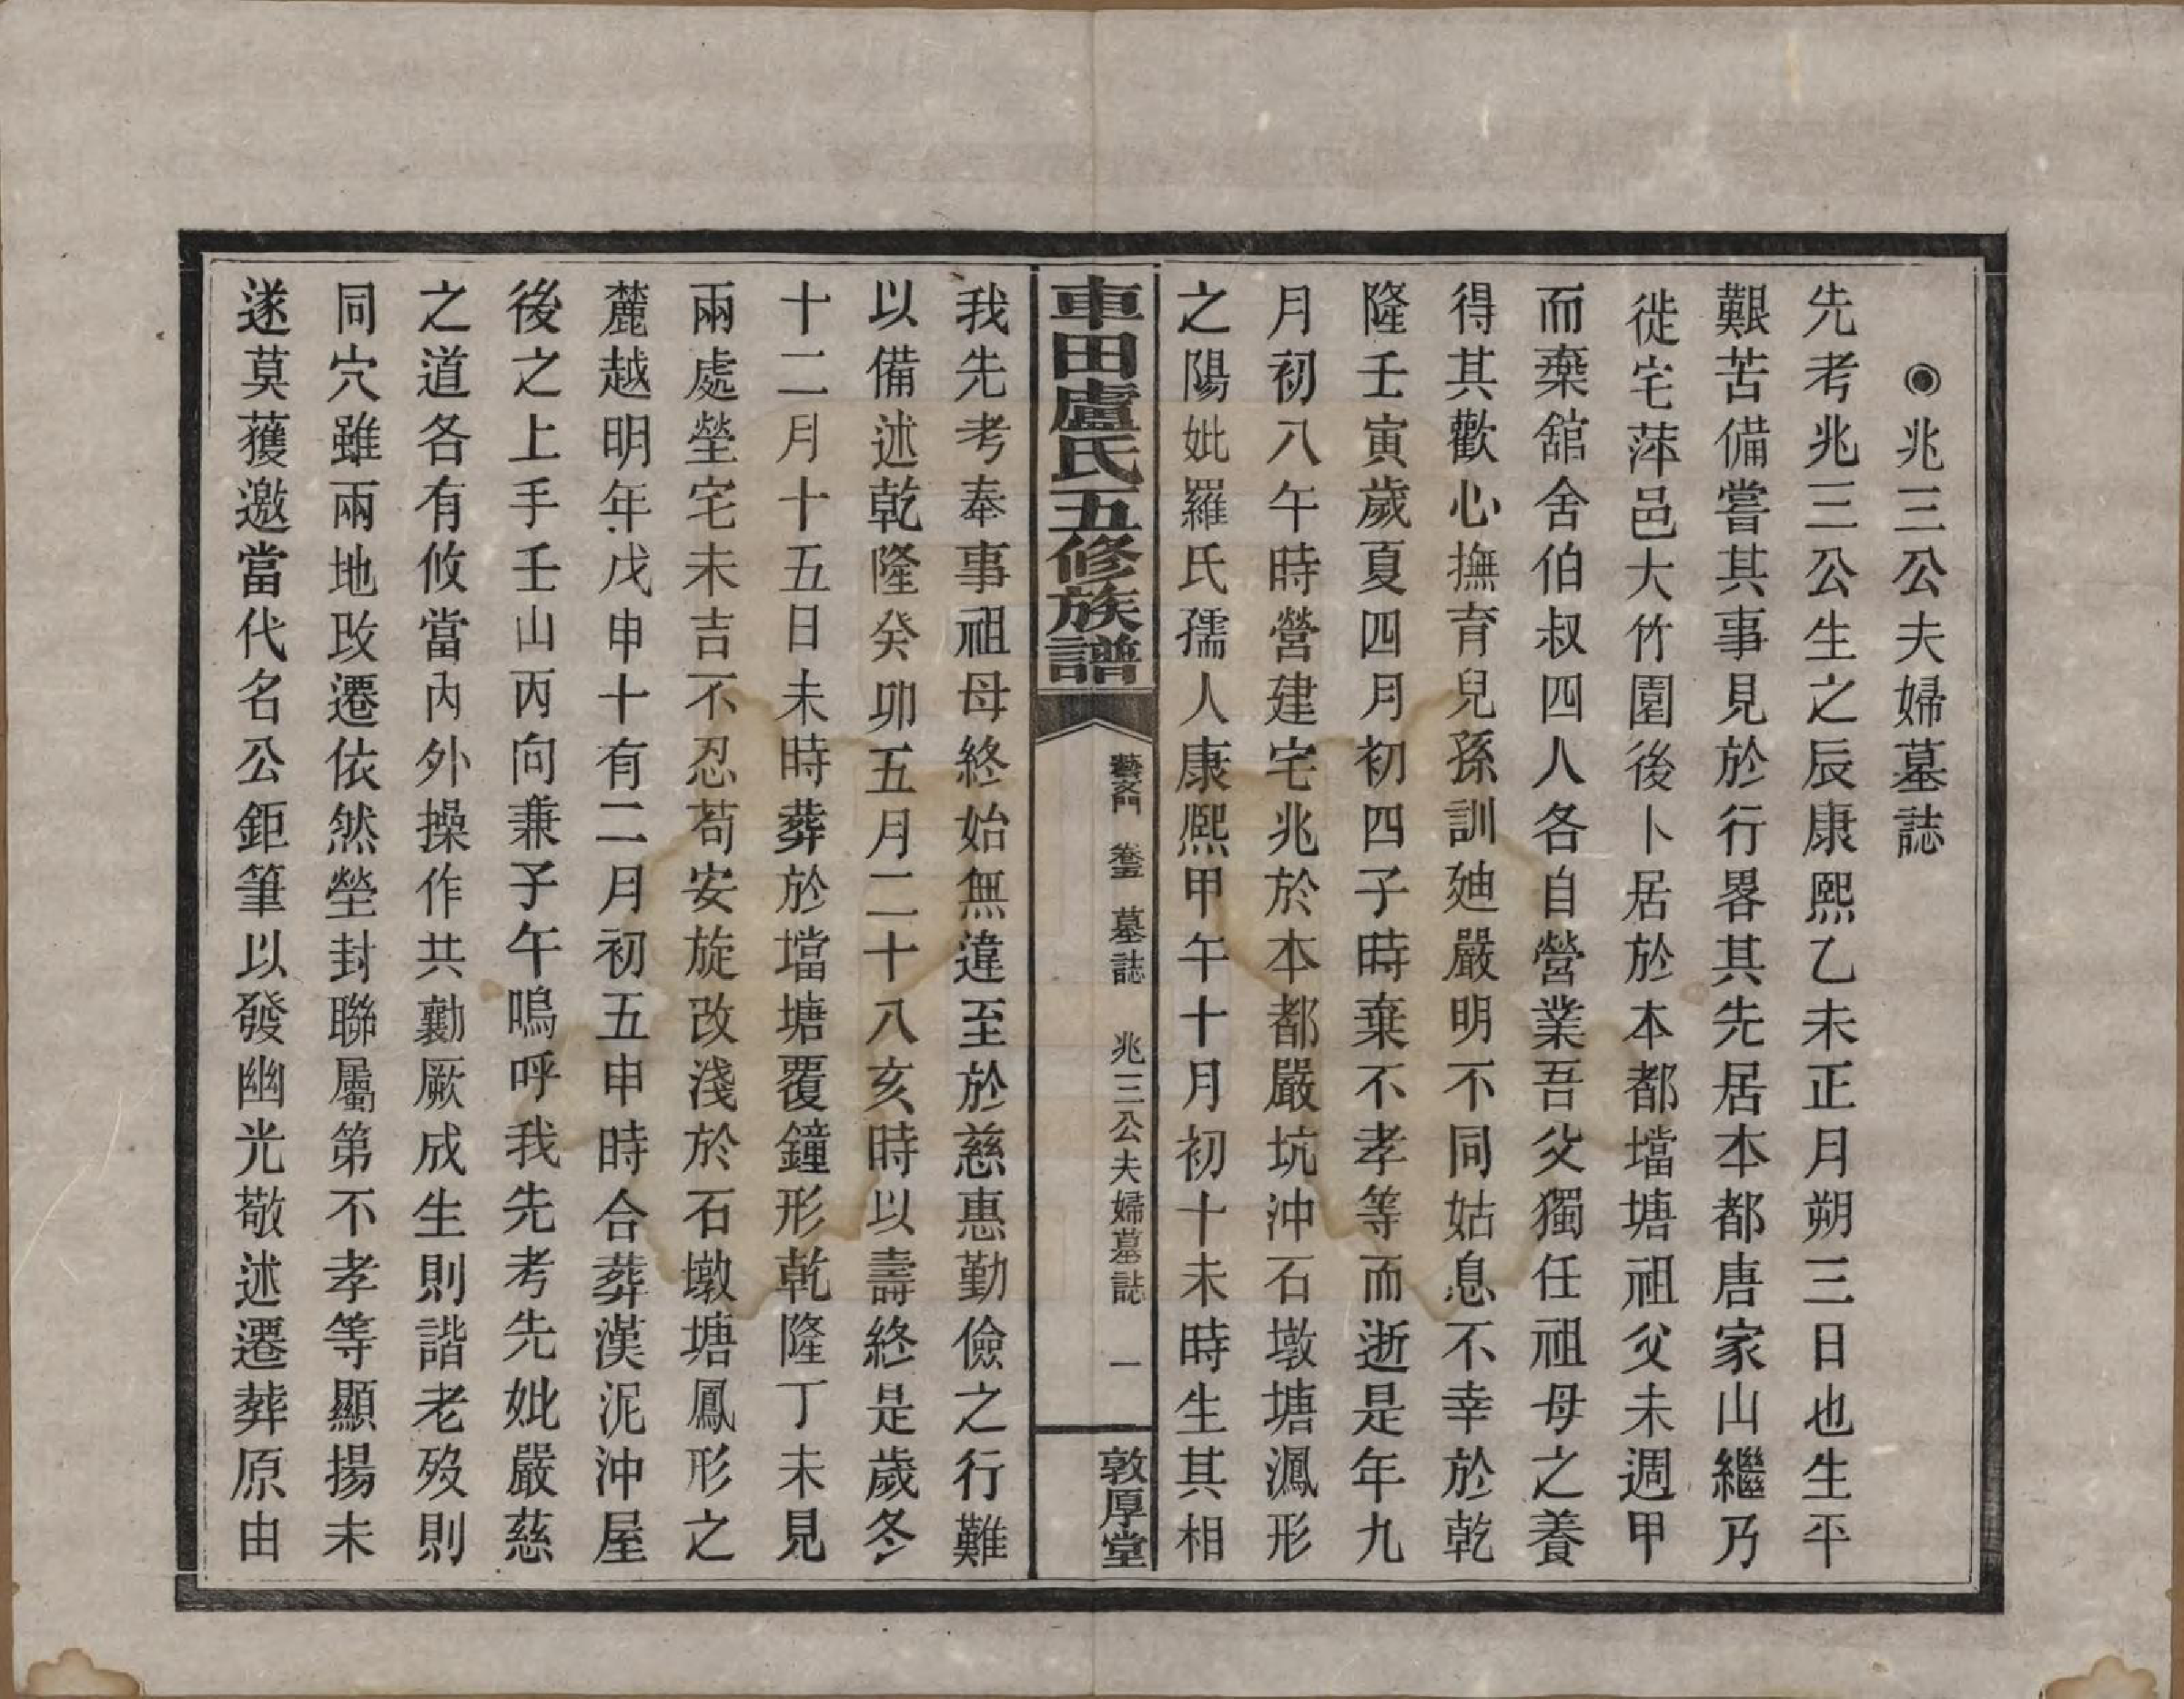 ◉兆三公夫婦墓誌
先考兆三公生之辰康熙乙未正月朔三日也生平
艱苦備嘗其事見於行畧其先居本都唐家山繼乃
徙宅萍邑大竹園後卜居於本都壋塘祖父未週甲
而棄舘舍伯叔四人各自營業吾父獨任祖母之養
得其歡心撫育兒孫訓廸嚴明不同姑息不幸於乾
隆壬寅歲夏四月初四子時棄不孝等而逝是年九
月初八午時營建宅兆於本都嚴坑沖石墩塘鳳形
之陽妣羅氏孺人康熙甲午十月初十未時生其相
車田盧氏五修族譜
藝文門 卷五 墓誌 兆三公夫婦墓誌 一
敦厚堂
我先考奉事祖母終始無違至於慈惠勤儉之行難
以備述乾隆癸卯五月二十八亥時以壽終是歲冬
十二月十五日未時葬於壋塘覆鐘形乾隆丁未見
兩處塋宅未吉不忍苟安旋改淺於石墩塘鳳形之
麓越明年戊申十有二月初五申時合葬漢泥沖屋
後之上手壬山丙向兼子午嗚呼我先考先妣嚴慈
之道各有攸當內外操作共勷厥成生則諧老歿則
同穴雖兩地改遷依然塋封聯屬第不孝等顯揚未
遂莫獲邀當代名公鉅筆以發幽光敬述遷葬原由